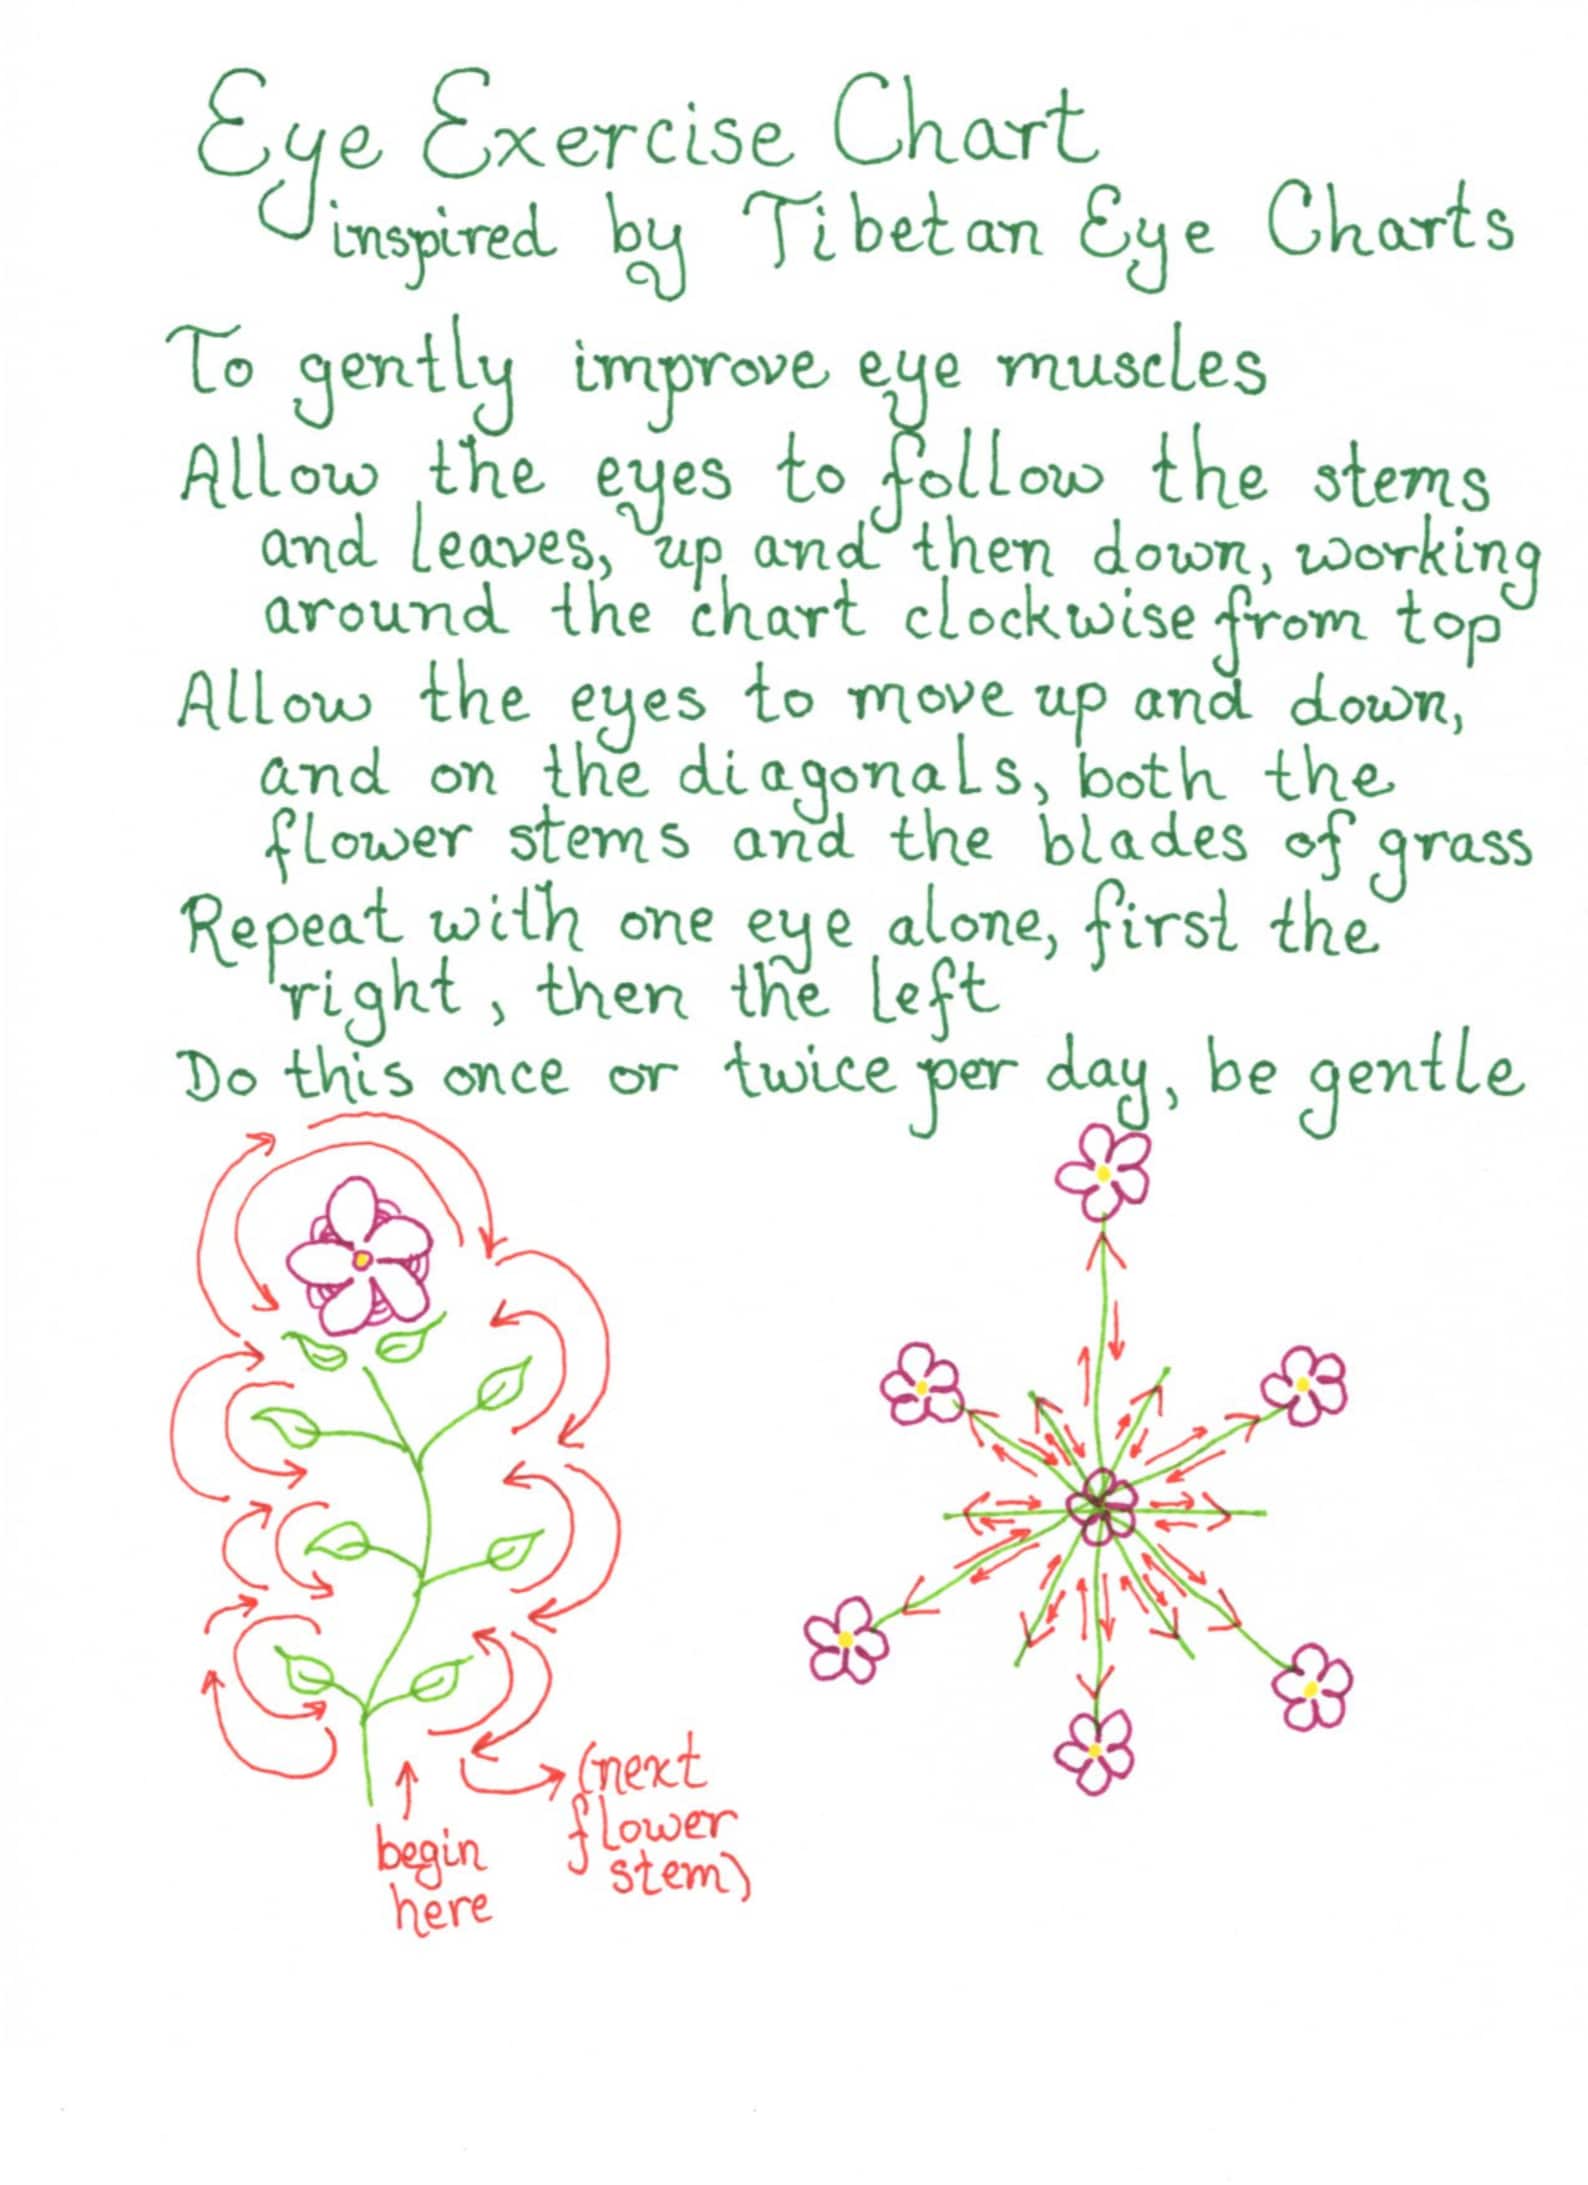 Eye Exercise Chart
inspired by Tibetan Eye Charts
To gently improve eye muscles
Allow the eyes to follow the stems
and leaves, up and then down, working
around the chart clockwise from top
Allow the eyes to move up and down,
and on the diagonals, both the
flower stems and the blades of grass
Repeat with one eye alone, first the
right, then the left
Do this once or twice per day, be gentle
begin
here
(next
flower
stem)